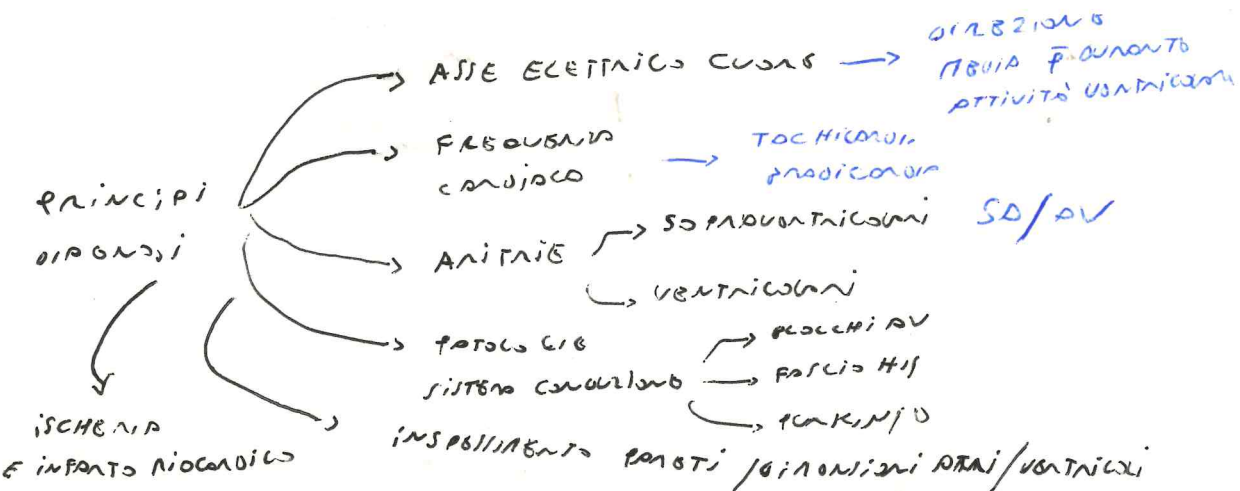 ASSE ELETTRICO CUORE → DIREZIONE
MEDIA P̄ DURANTE
ATTIVITÀ VENTRICOLARE
FREQUENZA
CARDIACA → TACHICARDIA
BRADICARDIA
PRINCIPI
DIAGNOSI
ARITMIE → SOPRAVENTRICOLARI SA/AV
→ VENTRICOLARI
PATOLOGIE
SISTEMA CONDUZIONE → BLOCCHI AV
→ FASCIO HIS
→ PURKINJE
ISCHEMIA
E INFARTO MIOCARDICO
INSPESSIMENTO PARETI / DIMENSIONI ATRI/VENTRICOLI